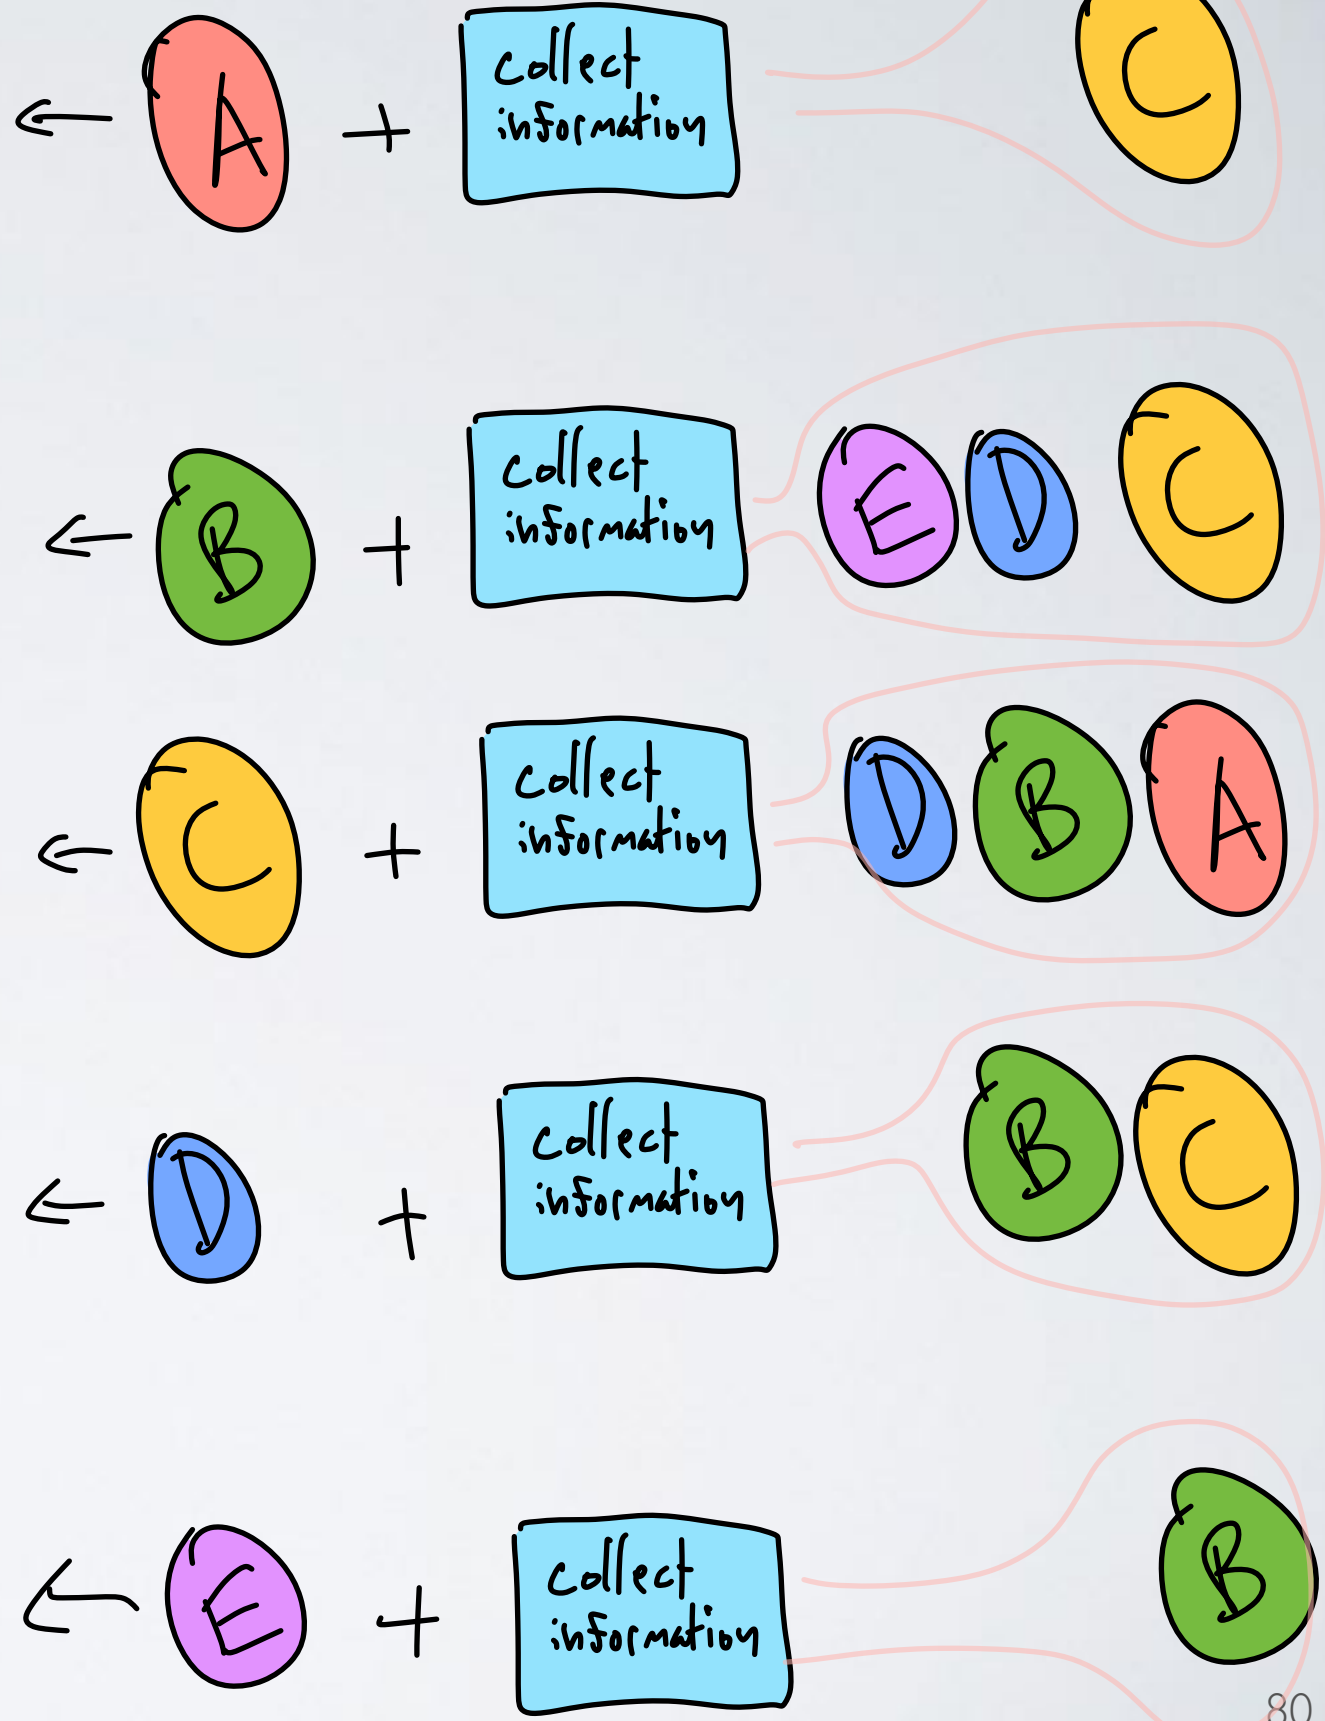 A + Collect information C
B + Collect information E D C
C + Collect information D B A
D + Collect information B C
E + Collect information B
80